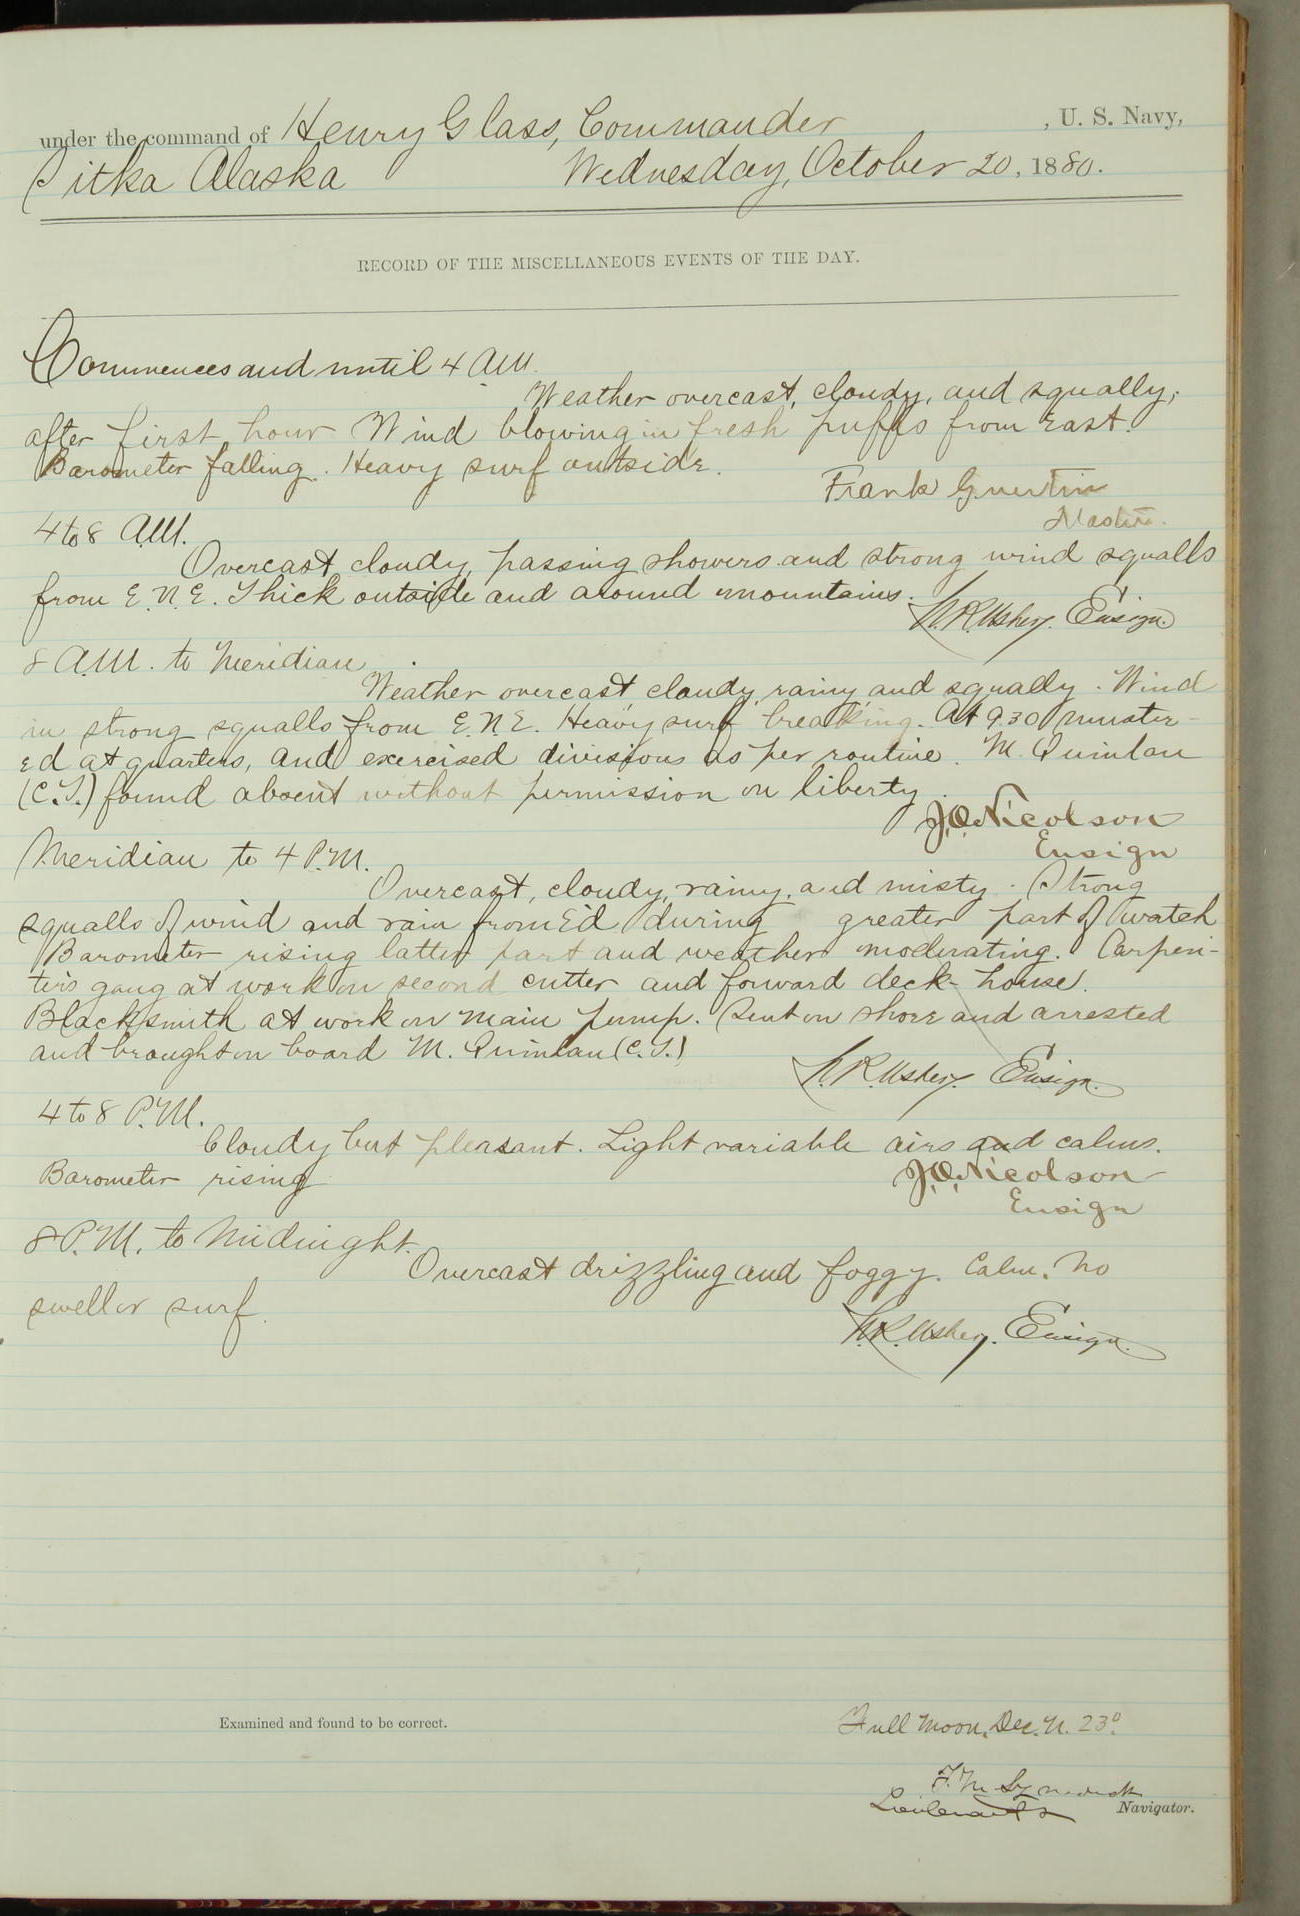 under the command of Henry Glass, Commander , U. S. Navy,
Sitka Alaska Wednesday, October 20, 1880.
RECORD OF THE MISCELLANEOUS EVENTS OF THE DAY.
Commences and until 4 A.M.
Weather overcast, cloudy, and squally,
after first hour Wind blowing in fresh puffs from East.
Barometer falling. Heavy surf outside.
Frank Guertin
Master.
4 to 8 A.M.
Overcast, cloudy, passing showers and strong wind squalls
from E.N.E. Thick outside and around mountains.
N.R. Usher, Ensign.
8 A.M. to Meridian
Weather overcast, cloudy, rainy, and squally. Wind
in strong squalls from E.N.E. Heavy surf breaking. At 9.30 muster-
ed at quarters, and exercised divisions as per routine. M. Quinlan
(C.S.) found absent without permission on liberty.
J.O. Nicolson
Ensign
Meridian to 4 P.M.
Overcast, cloudy, rainy, and misty. Strong
squalls of wind and rain from E'd during greater part of watch
Barometer rising latter part and weather moderating. Carpen-
ter's gang at work on second cutter and forward deck-house.
Blacksmith at work on main pump. Sent on shore and arrested
and brought on board M. Quinlan (C.S.)
N.R. Usher, Ensign.
4 to 8 P.M.
Cloudy but pleasant. Light variable airs and calms.
Barometer rising
J.O. Nicolson
Ensign
8 P.M. to Midnight.
Overcast drizzling and foggy. Calm. No
swell or surf.
N.R. Usher, Ensign.
Examined and found to be correct.
Full Moon, Dec. N. 23°.
F. M. Symonds
Lieutenant
Navigator.